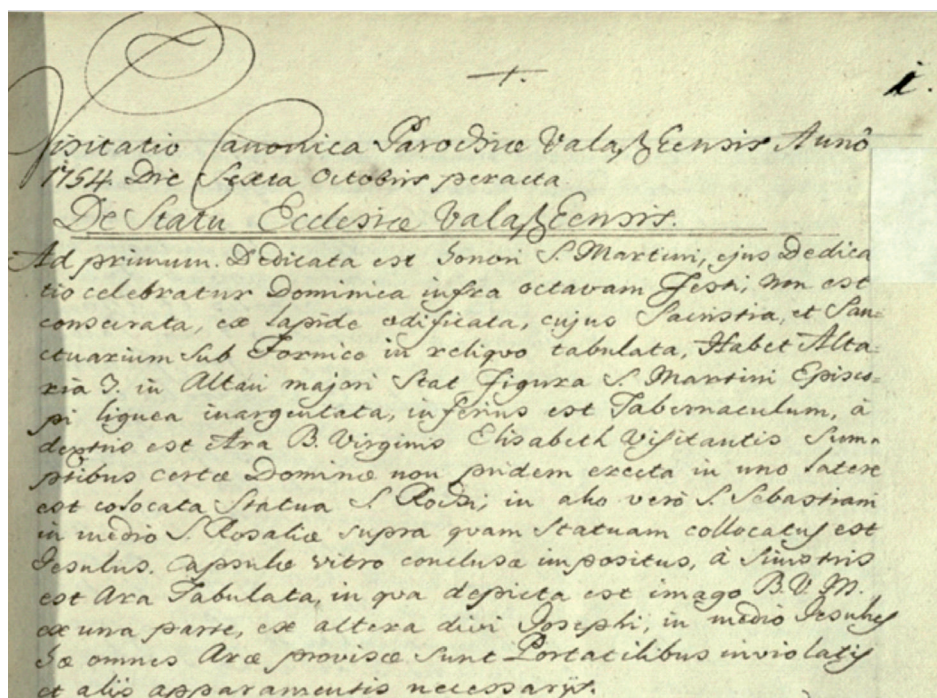 +.
1.
Visitatio Canonica Parochiæ Valaßkensis Anno
1754 Die Sexta Octobris peracta
De Statu Ecclesiæ Valaßkensis.
Ad primum. Dedicata est honori S. Martini, ejus Dedica
tio celebratur Dominica infra octavam Festi; non est
consecrata, ex lapide ædificata, cujus Sacristia, et San=
ctuarium sub Fornice in reliquo tabulata, Habet Alta=
ria 3. in Altari majori Stat figura S. Martini Episco=
pi lignea inargentata, inferius est Tabernaculum, à
dextris est Ara B. Virginis Elisabeth Visitantis Sum=
ptibus certæ Dominæ non pridem erecta in uno latere
est colocata Statua S. Rochi; in alio verò S. Sebastiani
in medio S. Rosaliæ supra quam Statuam collocatus est
Jesulus. Capsulæ vitro conclusæ impositus, à Sinistris
est Ara Tabulata, in qua depicta est imago B.V.M.
ex una parte, ex altera divi Josephi, in medio Jesulus
hæ omnes Aræ provisæ sunt Portatilibus inviolatis
et alijs apparamentis necessarijs.